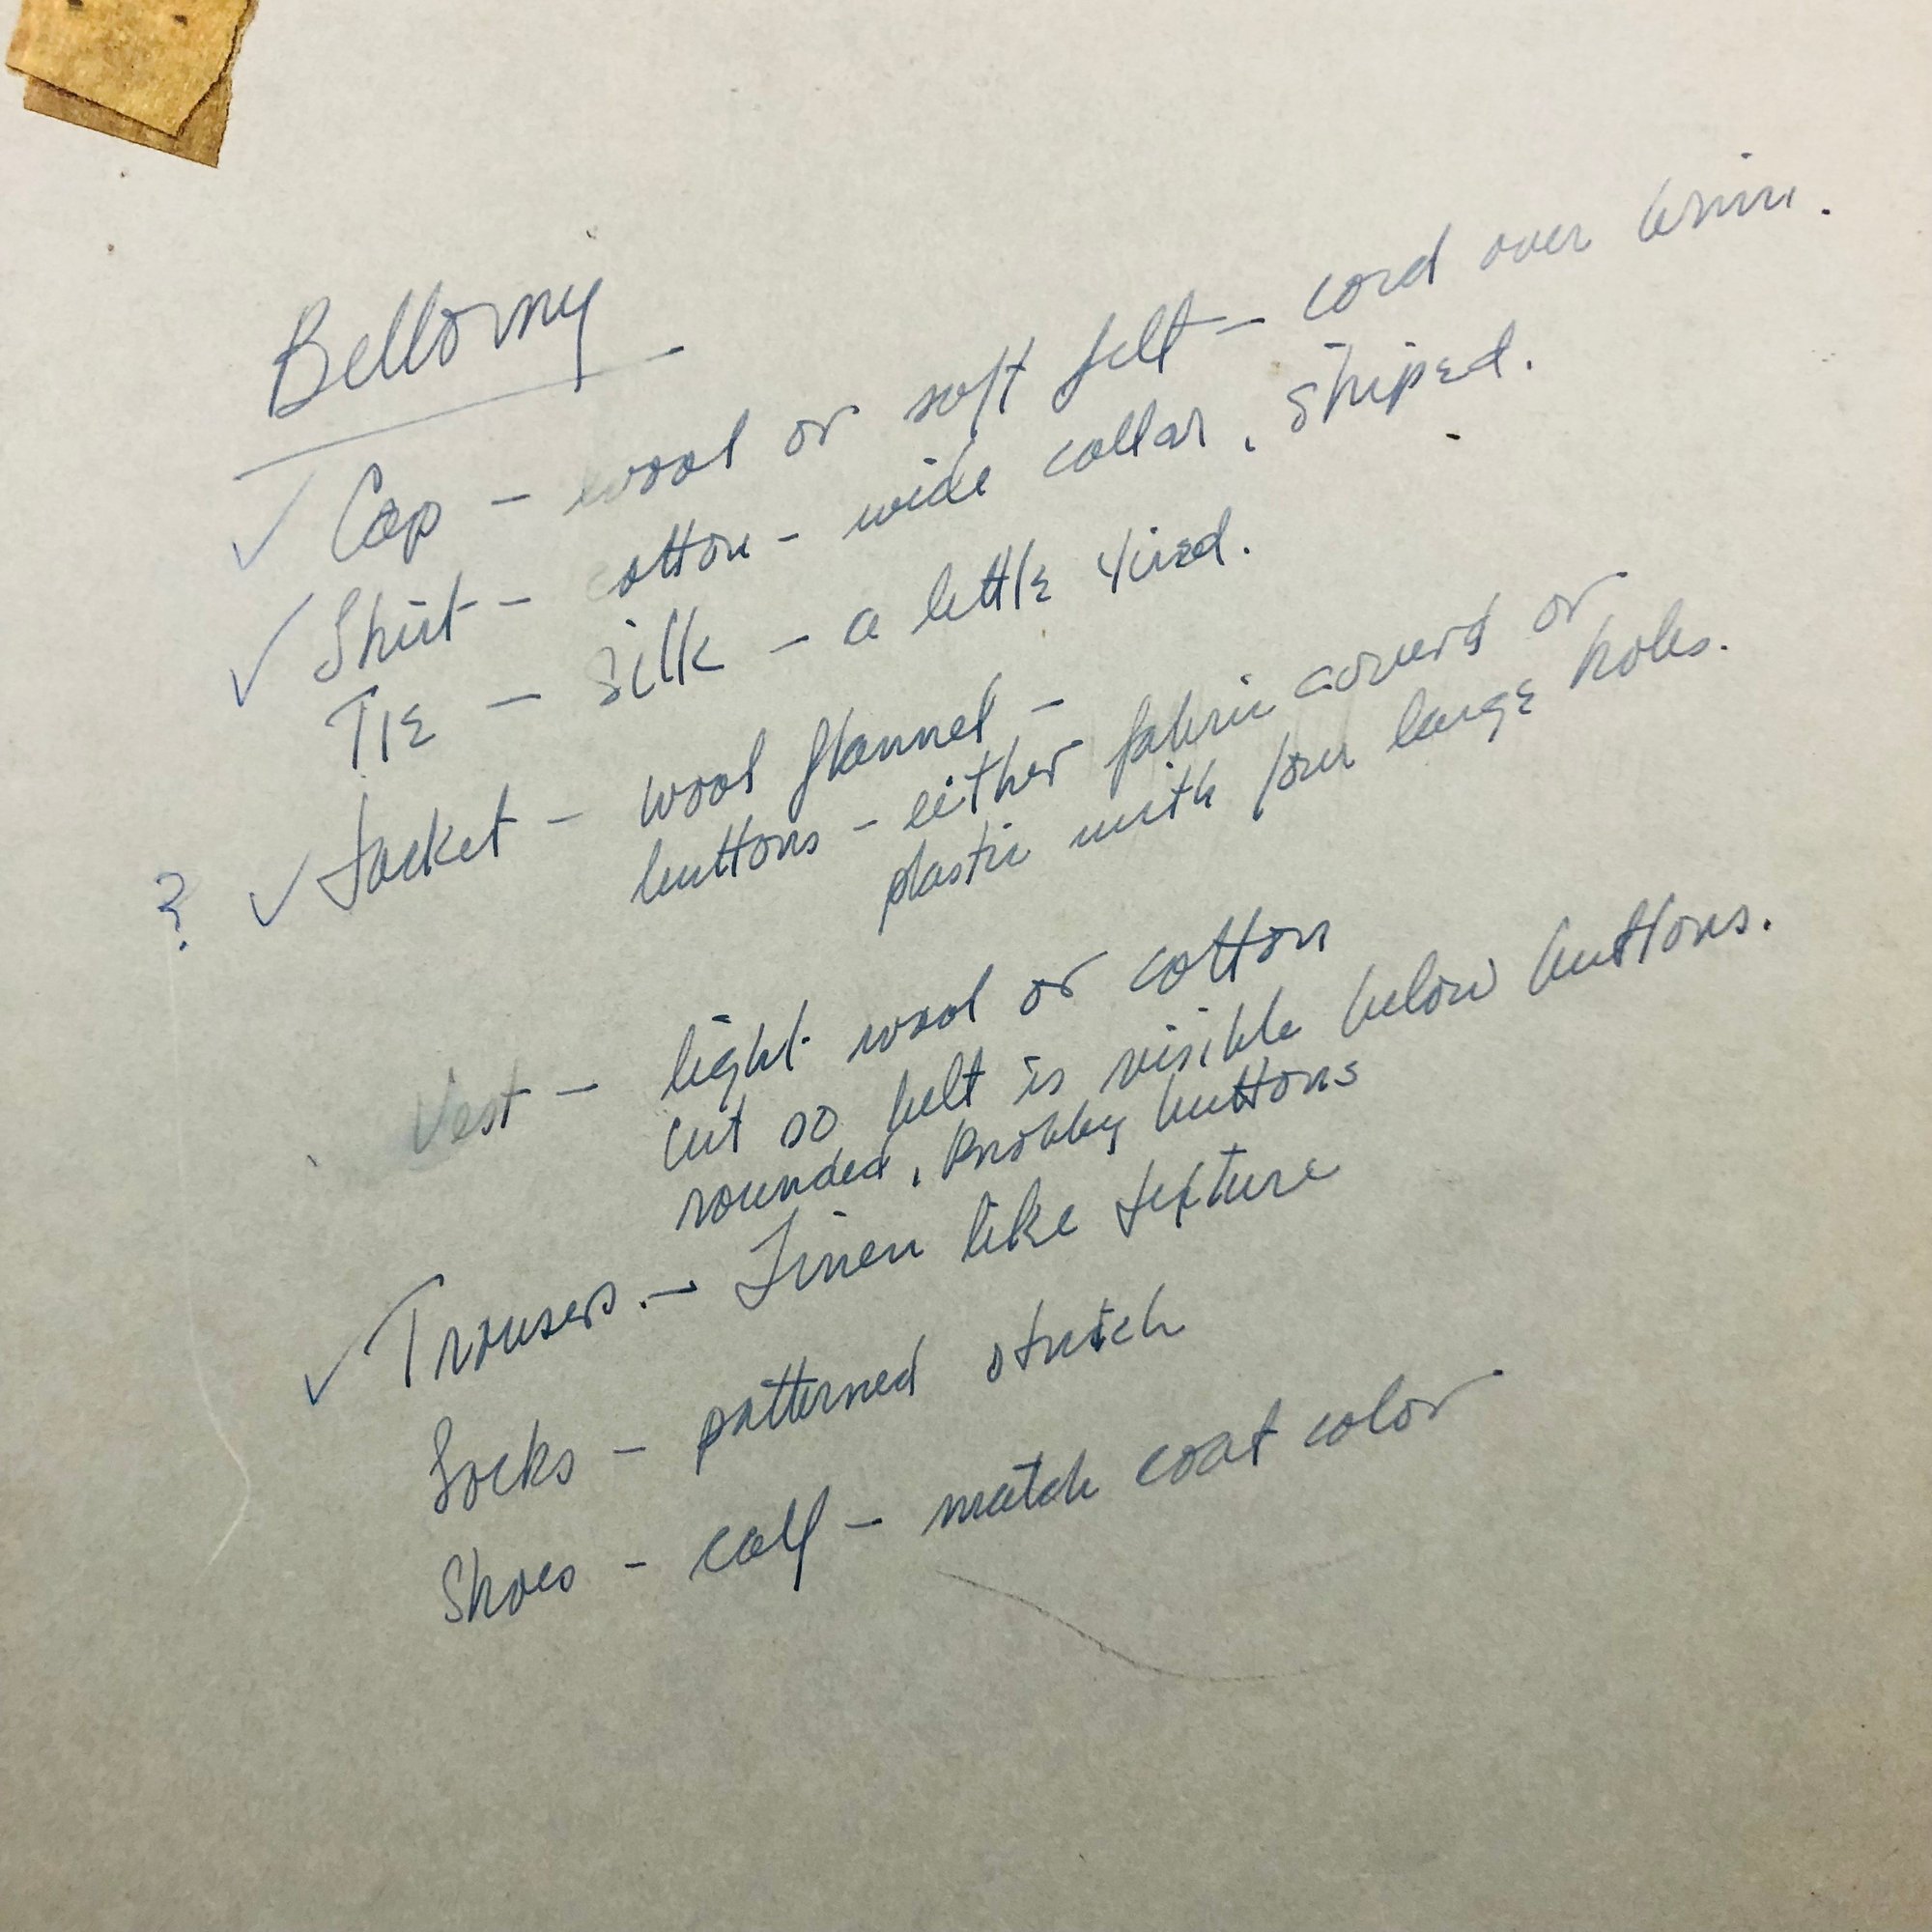 Bellomy
✓ Cap - wool or soft felt - cord over brim.
✓ Shirt - cotton - wide collar, striped.
Tie - silk - a little tired.
? ✓ Jacket - wool flannel -
buttons - either fabric covered or
plastic with four large holes.
Vest - light wool or cotton
cut so belt is visible below buttons.
rounded, knobby buttons
✓ Trousers. - Linen like texture
Socks - patterned stretch
Shoes - calf - match coat color